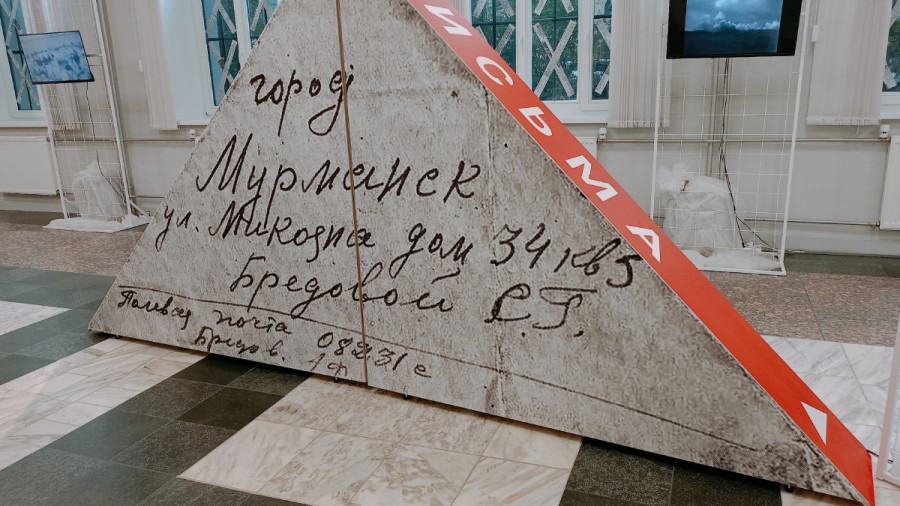 город
Мурманск
ул. Микояна дом 34 кв 5
Бредовой Е.Г.
Полевая почта 08231е
Бредов. 
ИСЬМА